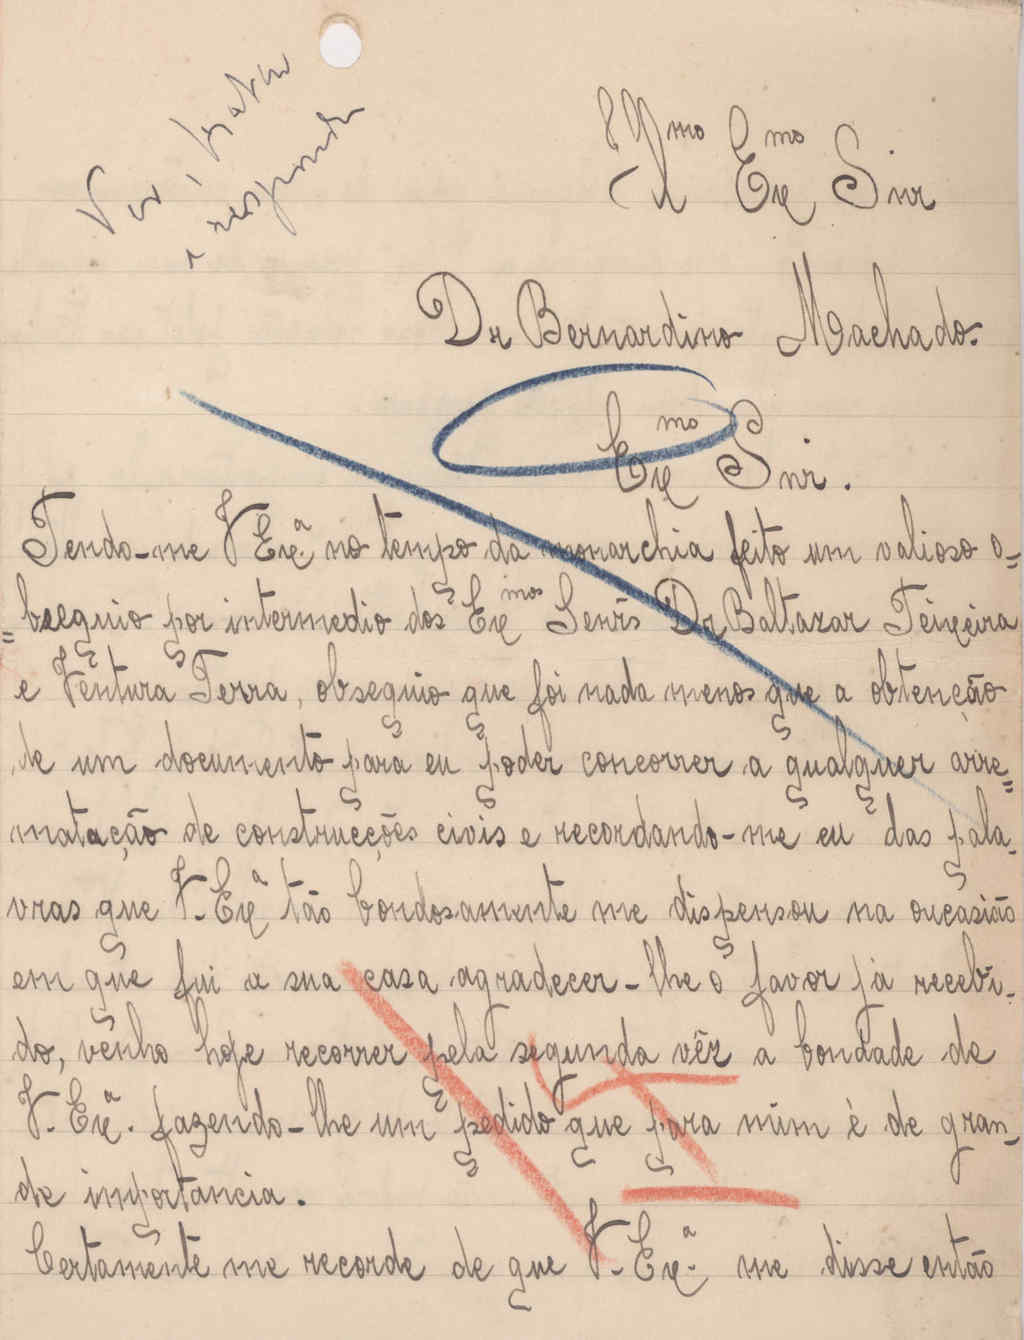 Vi, tratar
e responder
Illmo Exmo Snr
Dr Bernardino Machado.
Exmo Snr.
Tendo-me V Exª no tempo da monarchia feito um valioso o=
=bsequio por intermedio dos Exmos Senrs Dr Baltazar Teixeira
e Ventura Terra, obsequio que foi nada menos que a obtenção
de um documento para eu poder concorrer a qualquer arre=
matação de construcções civis e recordando-me eu das pala-
vras que V. Exª tão bondosamente me dispensou na oucasião
em que fui a sua casa agradecer-lhe o favor já recebi-
do, venho hoje recorrer pela segunda vêz a bondade de
V. Exª. fazendo-lhe um pedido que para mim è de gran-
de importancia.
Certamente me recorde de que V. Exª. me disse então